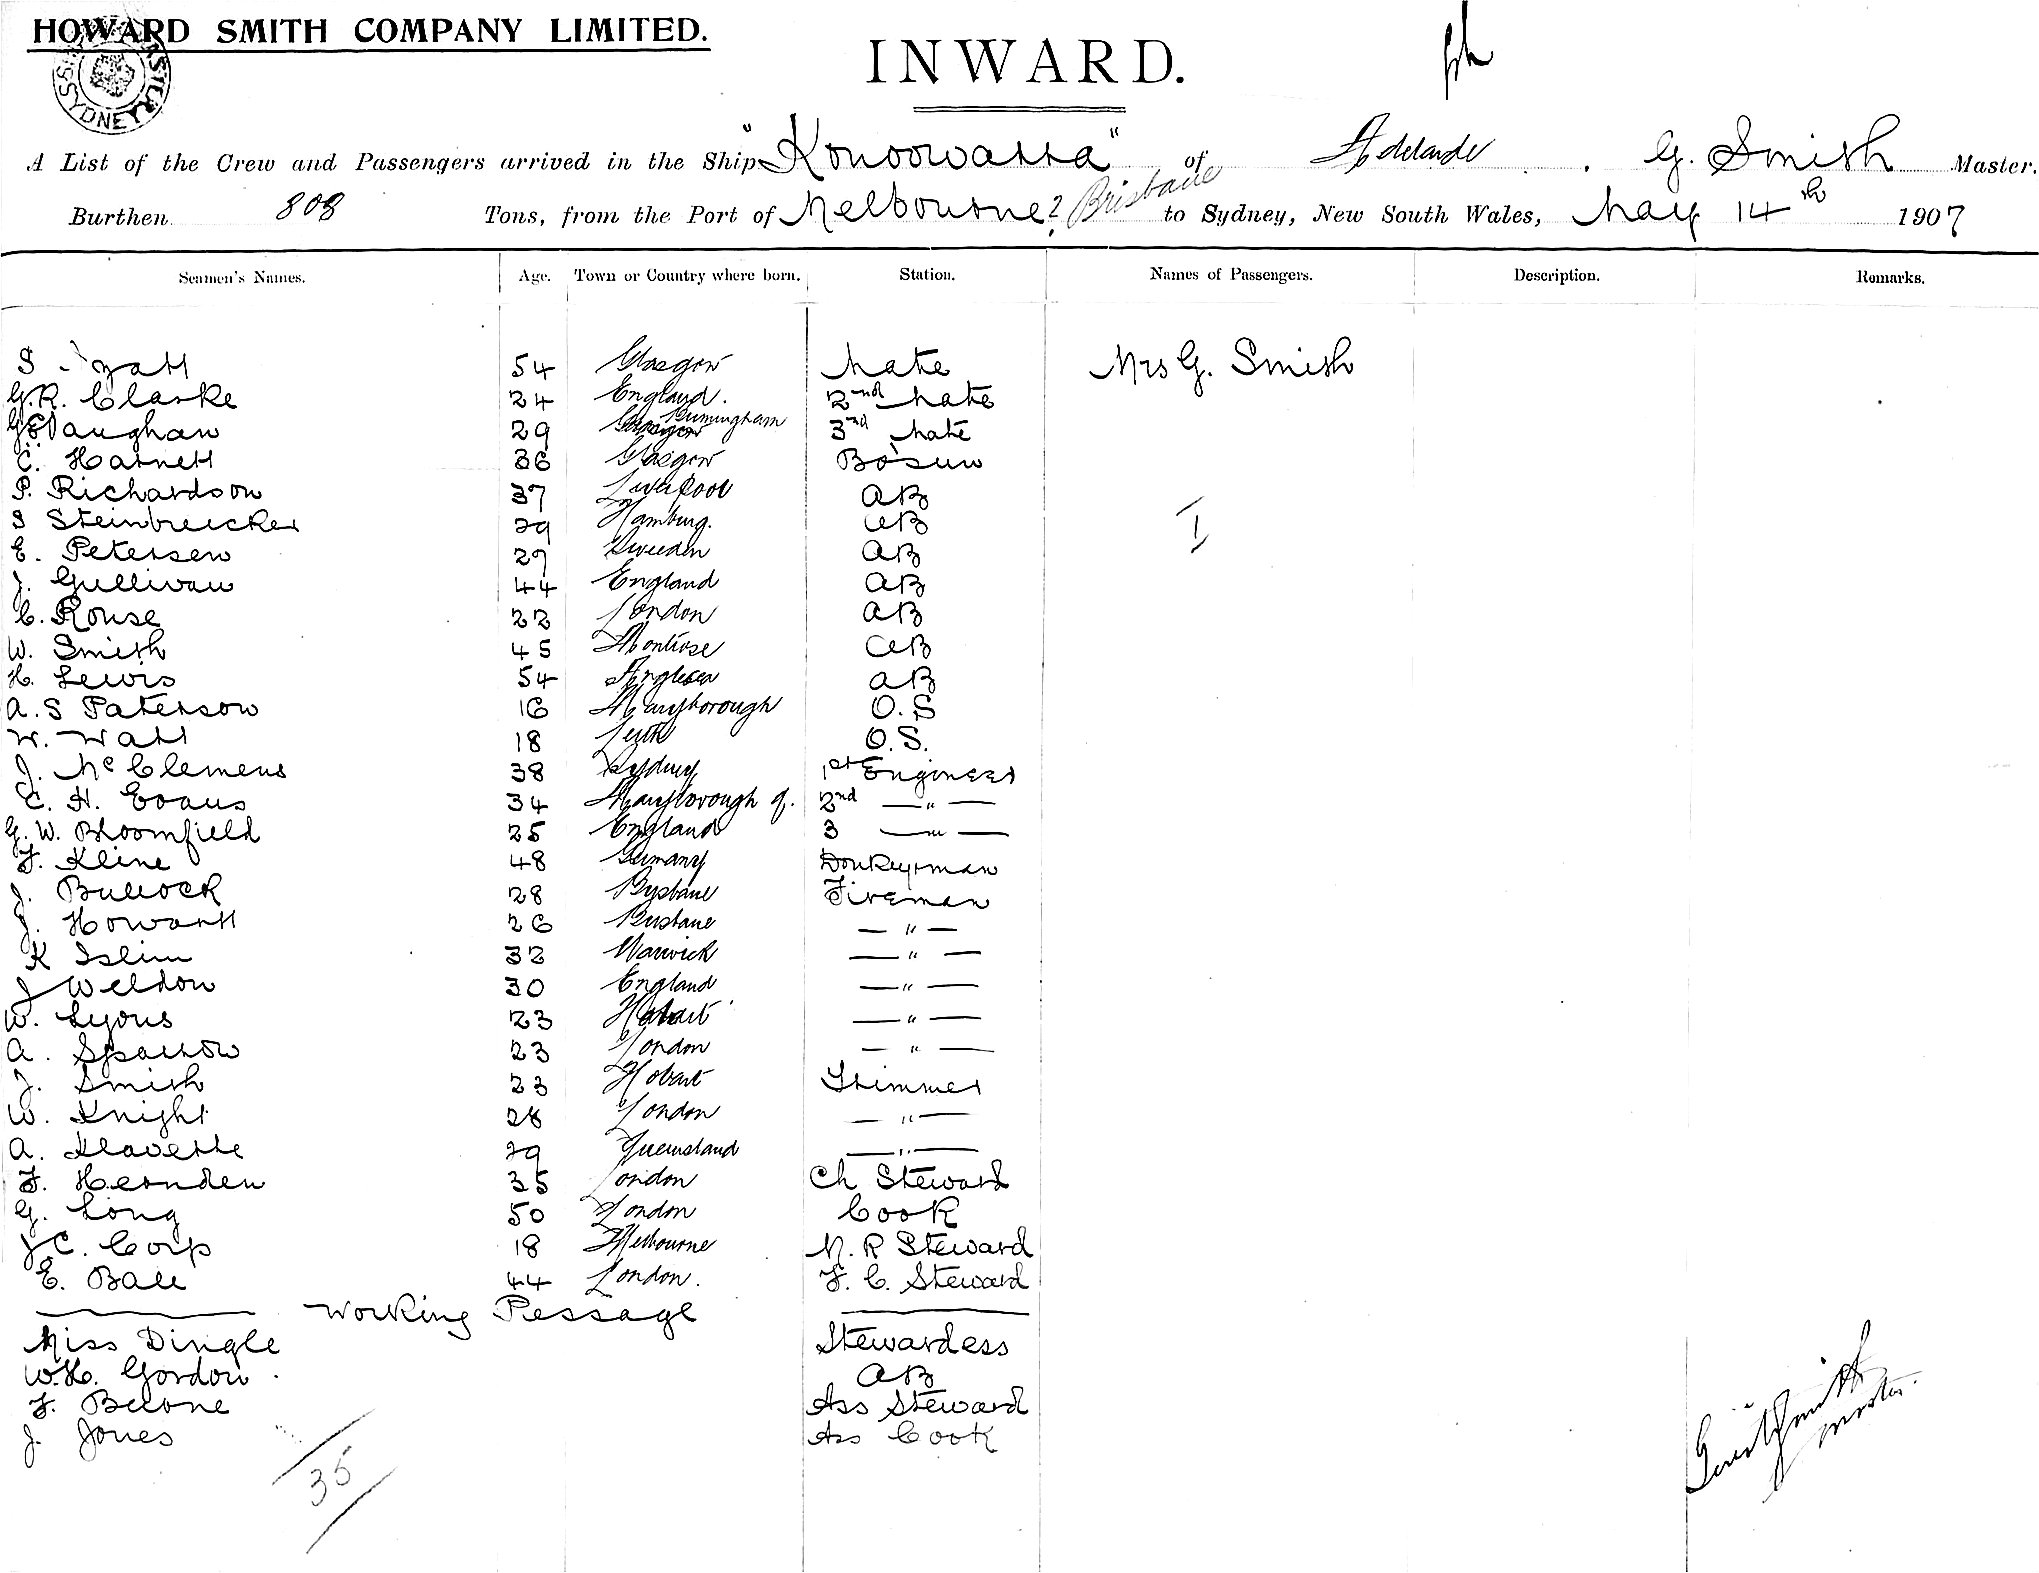 HOWARD SMITH COMPANY LIMITED.
SYDNEY
INWARD.
A List of the Crew and Passengers arrived in the Ship "Konoowarra" of Adelaide, G. Smith Master.
Burthen 808 Tons, from the Port of Melbourne? Brisbane to Sydney, New South Wales, May 14th 1907
Seamen's Names. Age. Town or Country where born. Station. Names of Passengers. Description. Remarks.
S 54 Glasgow Mate Mrs G. Smith
G.R. Clarke 24 England. 2nd Mate
Vaughan 29 Glasgow Birmingham 3rd Mate
C. Harnett 36 Glasgow Bo'sun
P. Richardson 37 Liverpool AB
S Steinbrecker 29 Hamburg. AB
I
E. Petersen 27 Sweeden AB
J. Gullivan 44 England AB
C. Rouse 22 London AB
W. Smith 45 Montrose AB
H. Lewis 54 Anglesea AB
A.S Paterson 16 Maryborough O.S
W. Watt 18 Leith O.S.
J. McClemens 38 Sydney 1st Engineer
C. H. Evans 34 Maryborough q. 2nd — " —
G. W. Bloomfield 25 England 3 — " —
F. Kline 48 Germany Donkeyman
J. Bullock 28 Brysbane Fireman
J. Howarth 26 Brisbane — " —
K Islim 32 Warwick — " —
J Weldon 30 England — " —
W. Lyons 23 Hobart — " —
A. Sparrow 23 London — " —
J. Smith 23 Hobart Trimmer
W. Knight 28 London — " —
A. Klavette 29 Queensland — " —
F. Hernden 35 London Ch Steward
G. Long 50 London Cook
J C. Corp 18 Melbourne M. R Steward
E. Ball 44 London. F. C. Steward
Working Pessage
Miss Dingle Stewardess
W.H. Gordon. AB
F. Beeone Ass Steward
J. Jones Ass Cook
35
Smith
Master.